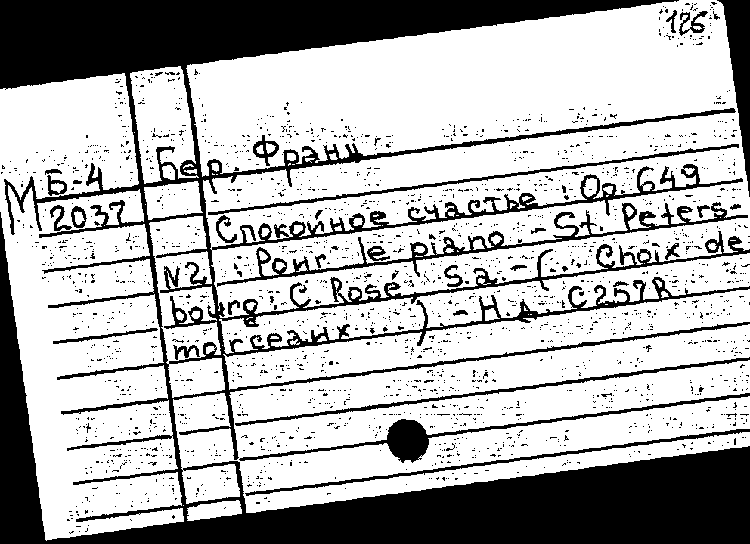 126
М Б-4
2037
Бер, Франц
Спокойное счастье : Op. 649
N2 : Pour le piano. - St. Peters-
bourg : C. Rosé, s.a. - (... Choix de
morceaux ...). - Н.д. C257R.